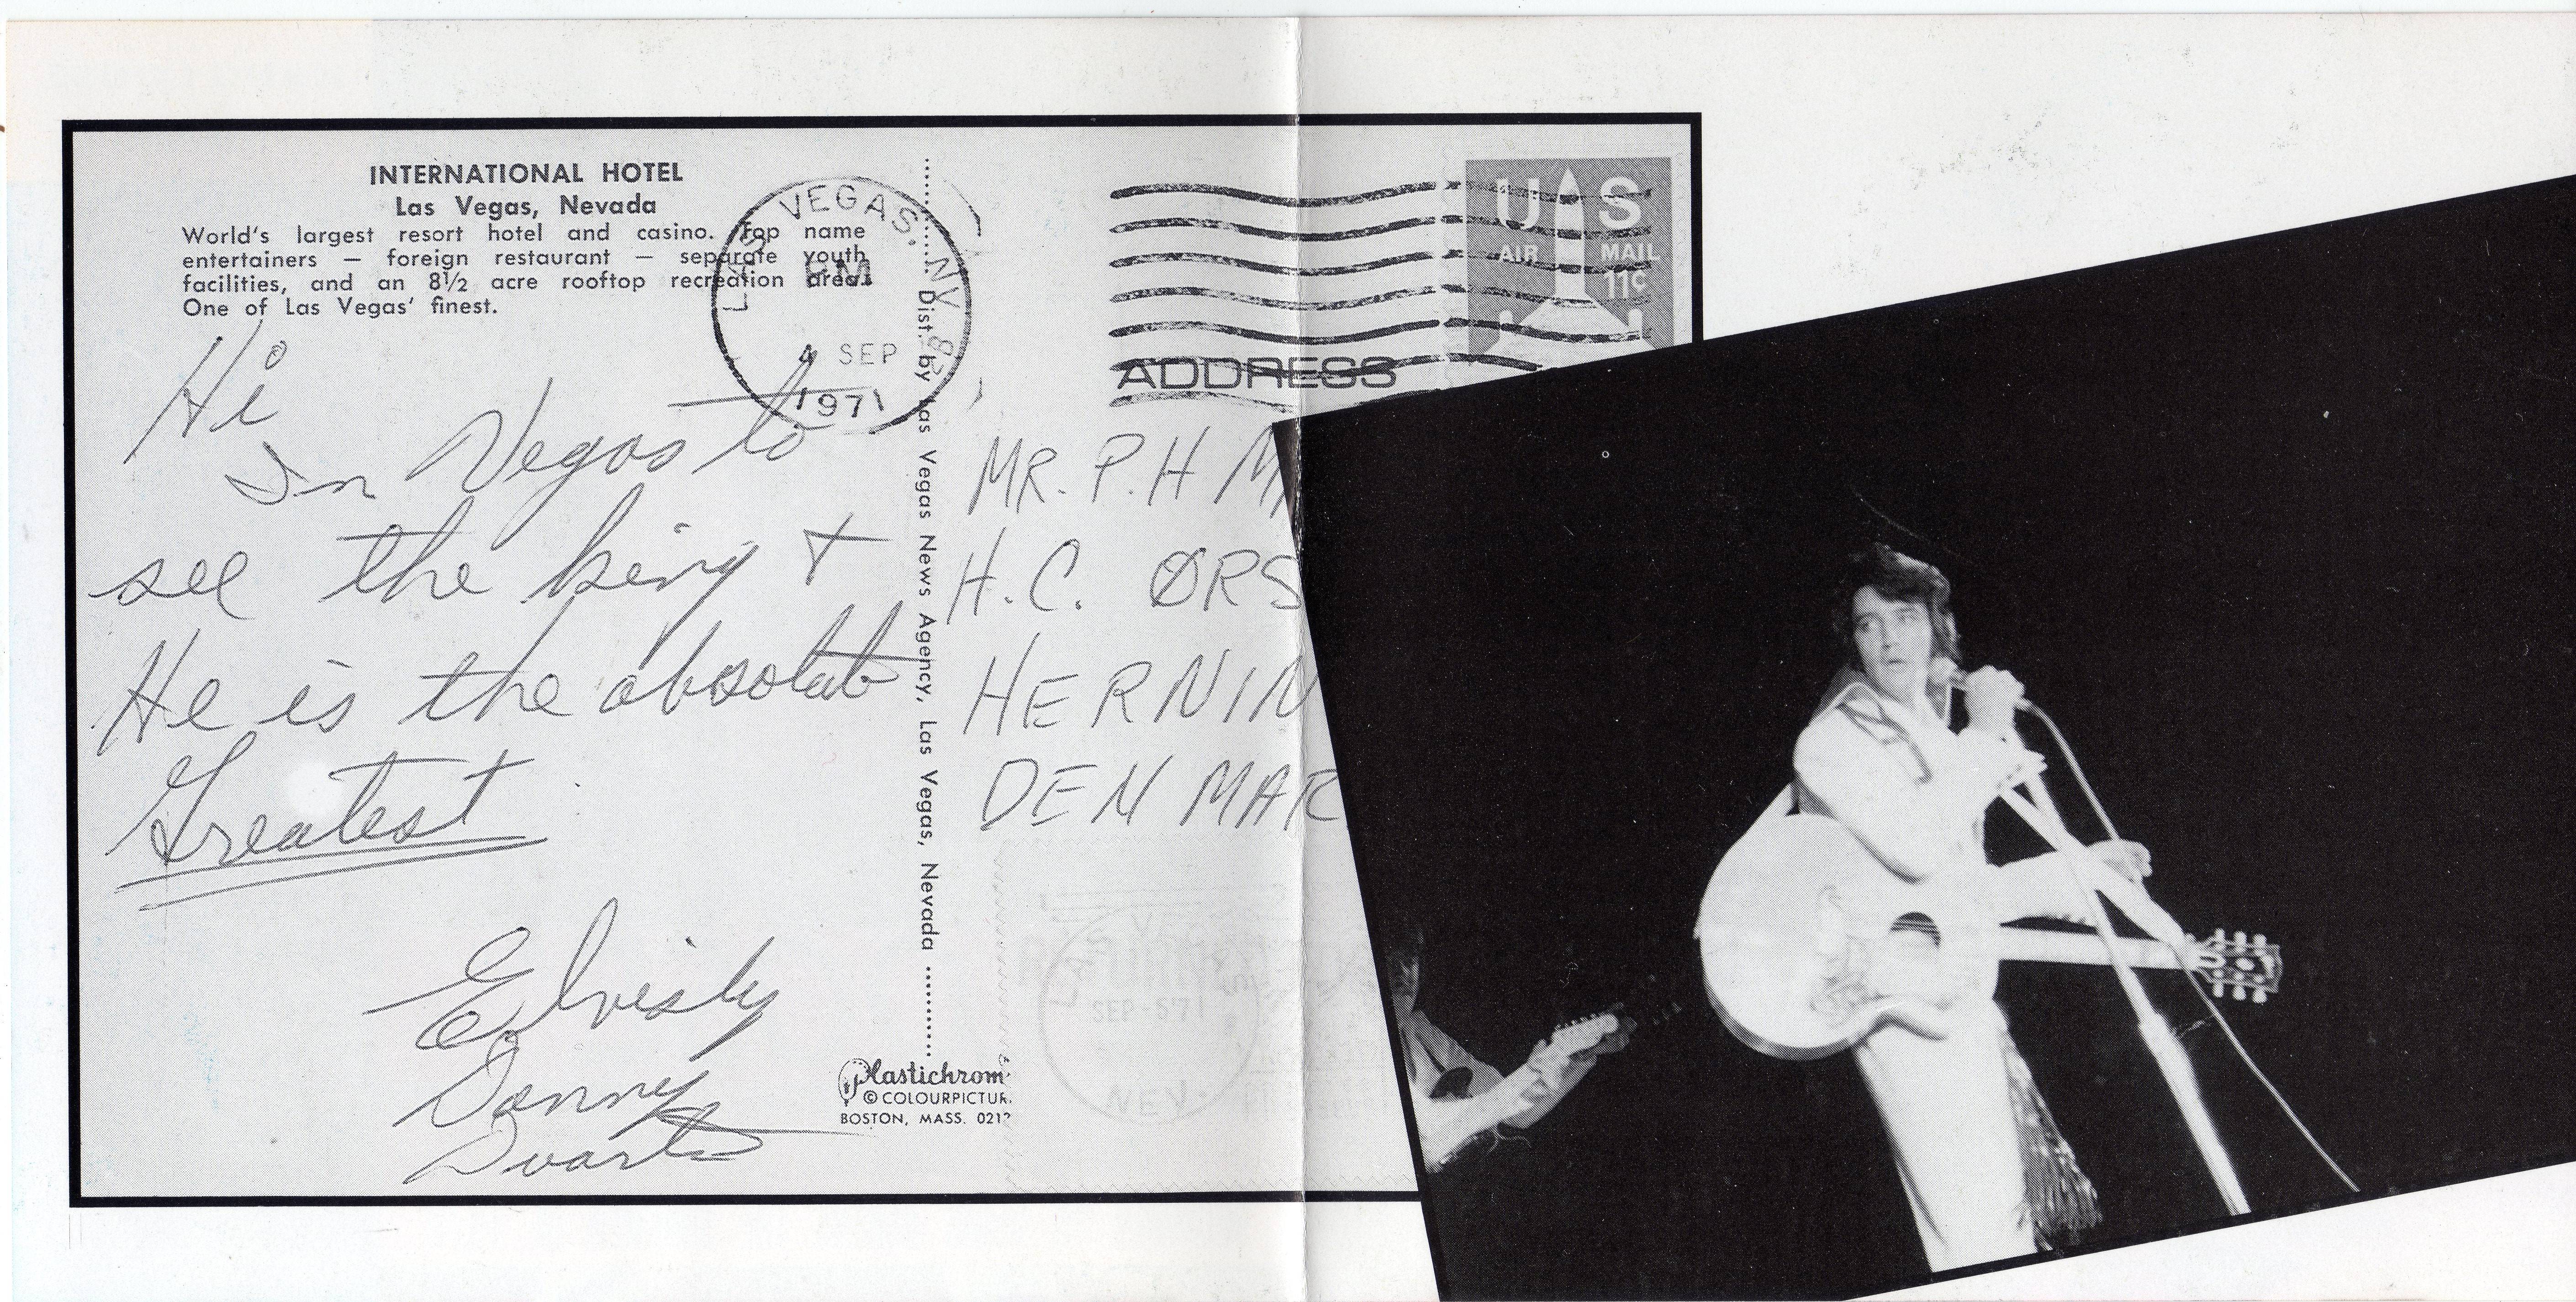 INTERNATIONAL HOTEL
Las Vegas, Nevada
World's largest resort hotel and casino. Top name
entertainers — foreign restaurant — separate youth
facilities, and an 8½ acre rooftop recreation area.
One of Las Vegas' finest.
LAS VEGAS, NV
PM
4 SEP
1971
U S
AIR MAIL
11¢
ADDRESS
Hi
In Vegas to
see the king +
He is the absolute
Greatest
Elvisly
Donny
Dist. by Las Vegas News Agency, Las Vegas, Nevada
MR. P.H M
H.C. ØRS
HERNIN
DEN MAR
SEP-5 71
NEV.
Plastichrom
© COLOURPICTUR
BOSTON, MASS. 021